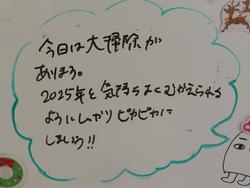 今日は大掃除が
あります。
2025年を気持ちよくむかえられる
ようにしっかりピカピカに
しましょう!!